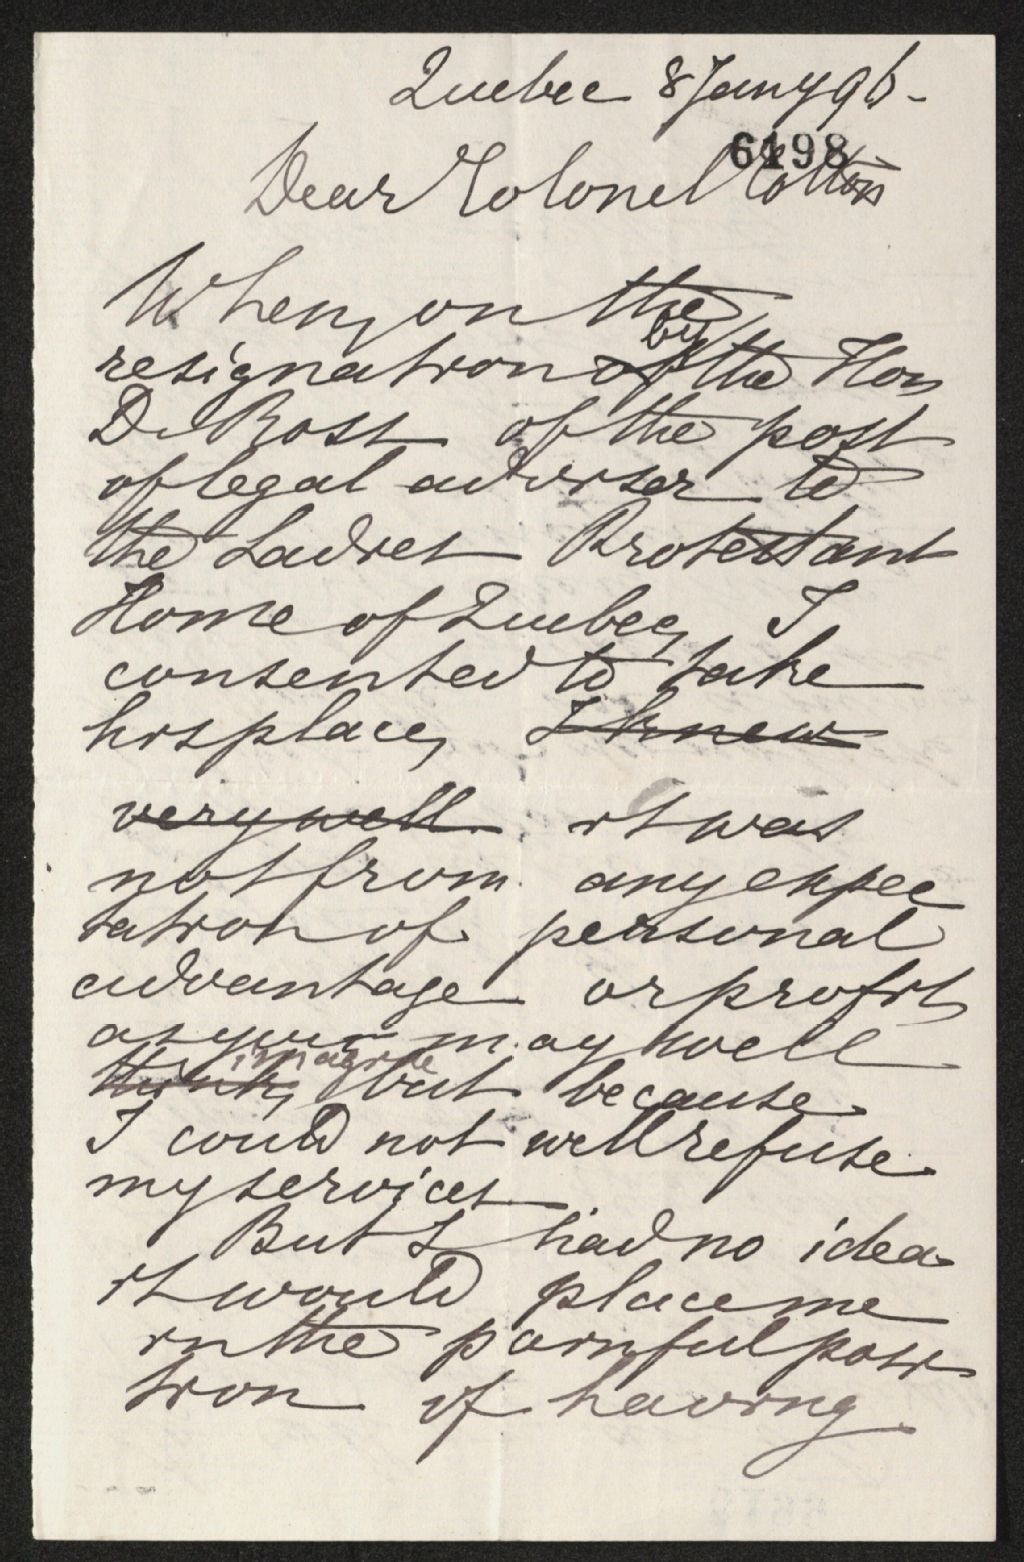 Quebec 8 Jany 96-
6198
Dear Colonel Cotton
When, on the
resignation of by the Hon
D. Ross of the post
of legal adviser to
the Ladies Protestant
Home of Quebec, I
consented to take
his place, I knew
very well it was
not from any expec
tation of personal
advantage or profit
as you may well
think, imagine but because
I could not well refuse
my services
But I had no idea
it would place me
in the painful posi
tion of having